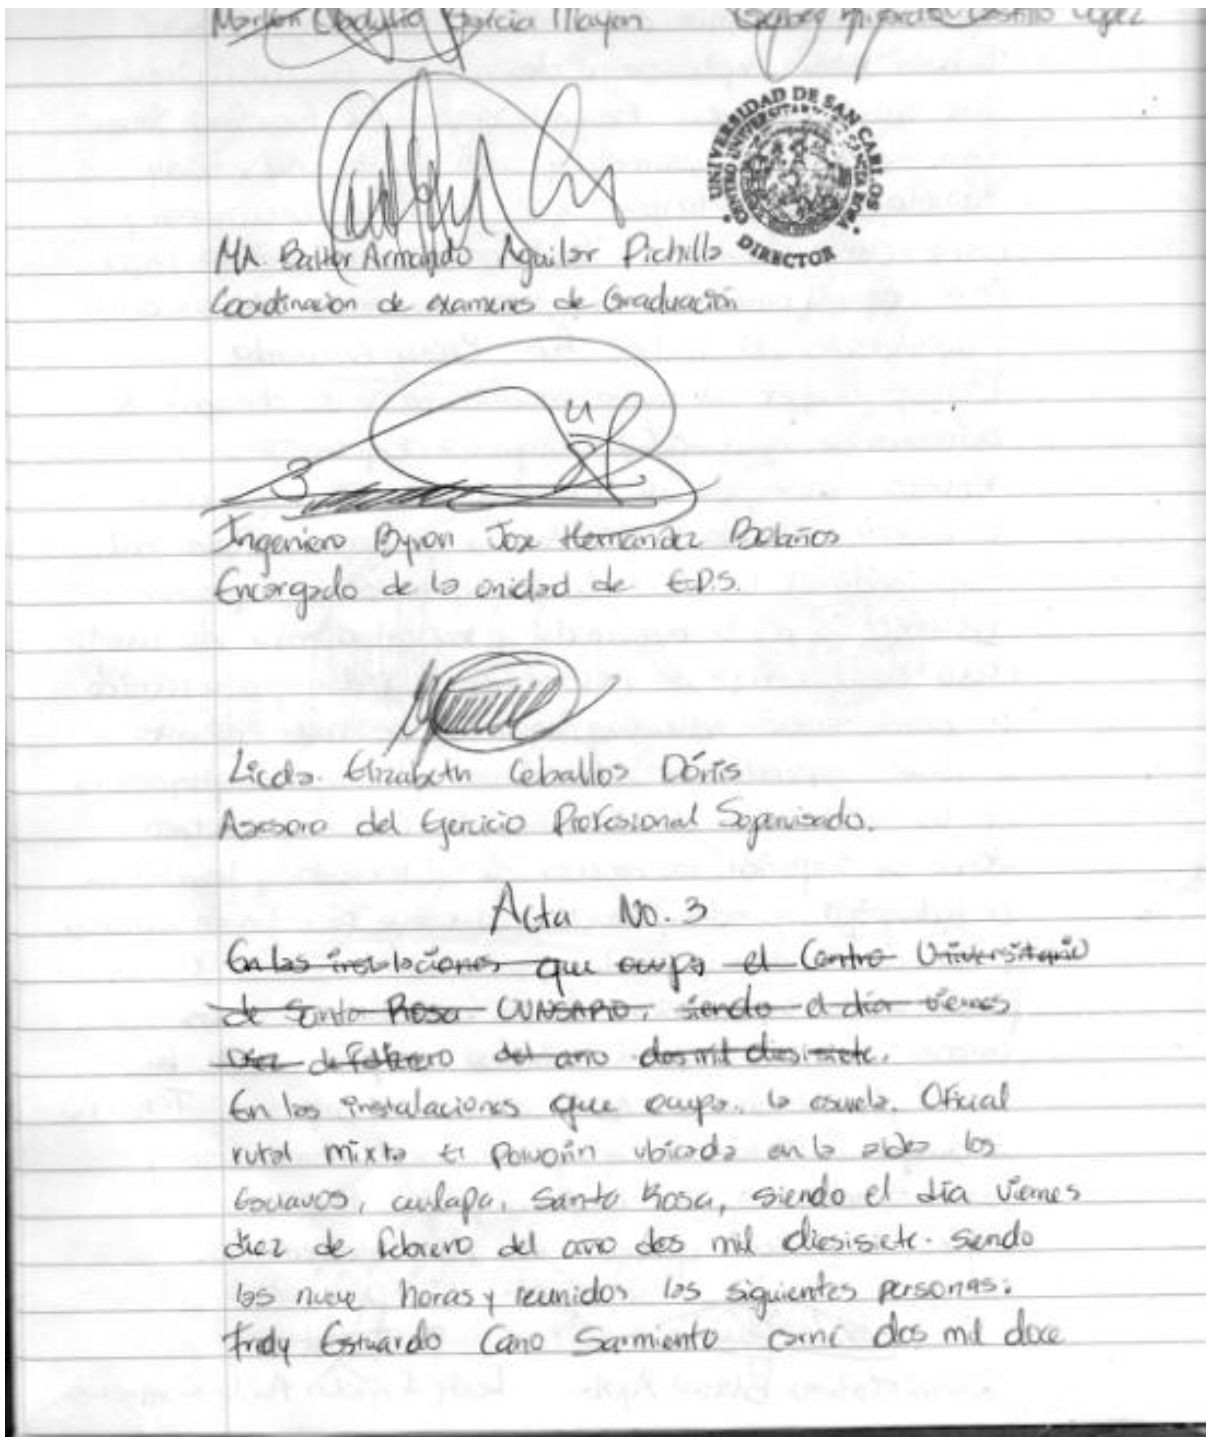 García Mayen Castillo López
UNIVERSIDAD DE SAN CARLOS
CENTRO UNIVERSITARIO DE SANTA ROSA
DIRECTOR
MA. Balter Armando Aguilar Pichilla
Coordinacion de examenes de Graduación
Ingeniero Byron Jose Hernandez Bolaños
Encargado de la unidad de E.P.S.
Licda. Elizabeth Ceballos Dónis
Asesora del Ejercicio Profesional Supervisado.
Acta No. 3
En las instalaciones que ocupa el Centro Universitario
de Santa Rosa CUNSARO, siendo el día viernes
Diez de febrero del ano dos mil diesisiete.
En las instalaciones que ocupa. la escuela. Oficial
rural mixta El Polvorin ubicada en la aldea los
Esclavos, cuilapa, Santa Rosa, siendo el día viernes
diez de febrero del ano dos mil diesisiete. siendo
las nueve horas y reunidos las siguientes personas:
Fredy Estuardo Cano Sarmiento carné dos mil doce